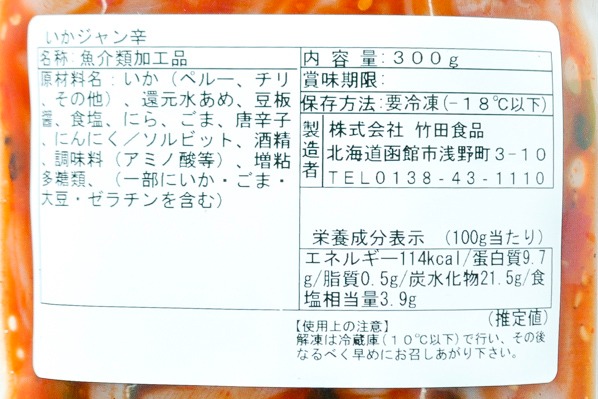 いかジャン辛
名称：魚介類加工品
原材料名：いか（ペルー、チリ
、その他）、還元水あめ、豆板
醤、食塩、にら、ごま、唐辛子
、にんにく／ソルビット、酒精
、調味料（アミノ酸等）、増粘
多糖類、（一部にいか・ごま・
大豆・ゼラチンを含む）
内容量：300g
賞味期限：
保存方法：要冷凍（－18℃以下）
製造者
株式会社 竹田食品
北海道函館市浅野町3-10
TEL0138-43-1110
栄養成分表示 （100g当たり）
エネルギー114kcal/蛋白質9.7
g/脂質0.5g/炭水化物21.5g/食
塩相当量3.9g
（推定値）
【使用上の注意】
解凍は冷蔵庫（10℃以下）で行い、その後
なるべく早めにお召しあがり下さい。